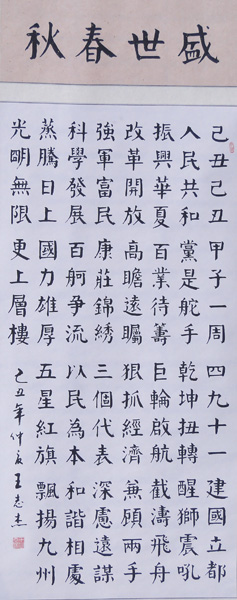 盛世春秋
己丑己丑 甲子一周 四九十一 建國立都
人民共和 黨是舵手 乾坤扭轉 醒獅震吼
振興華夏 百業待籌 巨輪啟航 截濤飛舟
改革開放 高瞻遠矚 狠抓經濟 兼顧兩手
強軍富民 康莊錦綉 三個代表 深慮遠謀
科學發展 百舸争流 以民為本 和諧相處
蒸騰日上 國力雄厚 五星紅旗 飄揚九州
光明無限 更上層樓 己丑年仲夏 王志杰